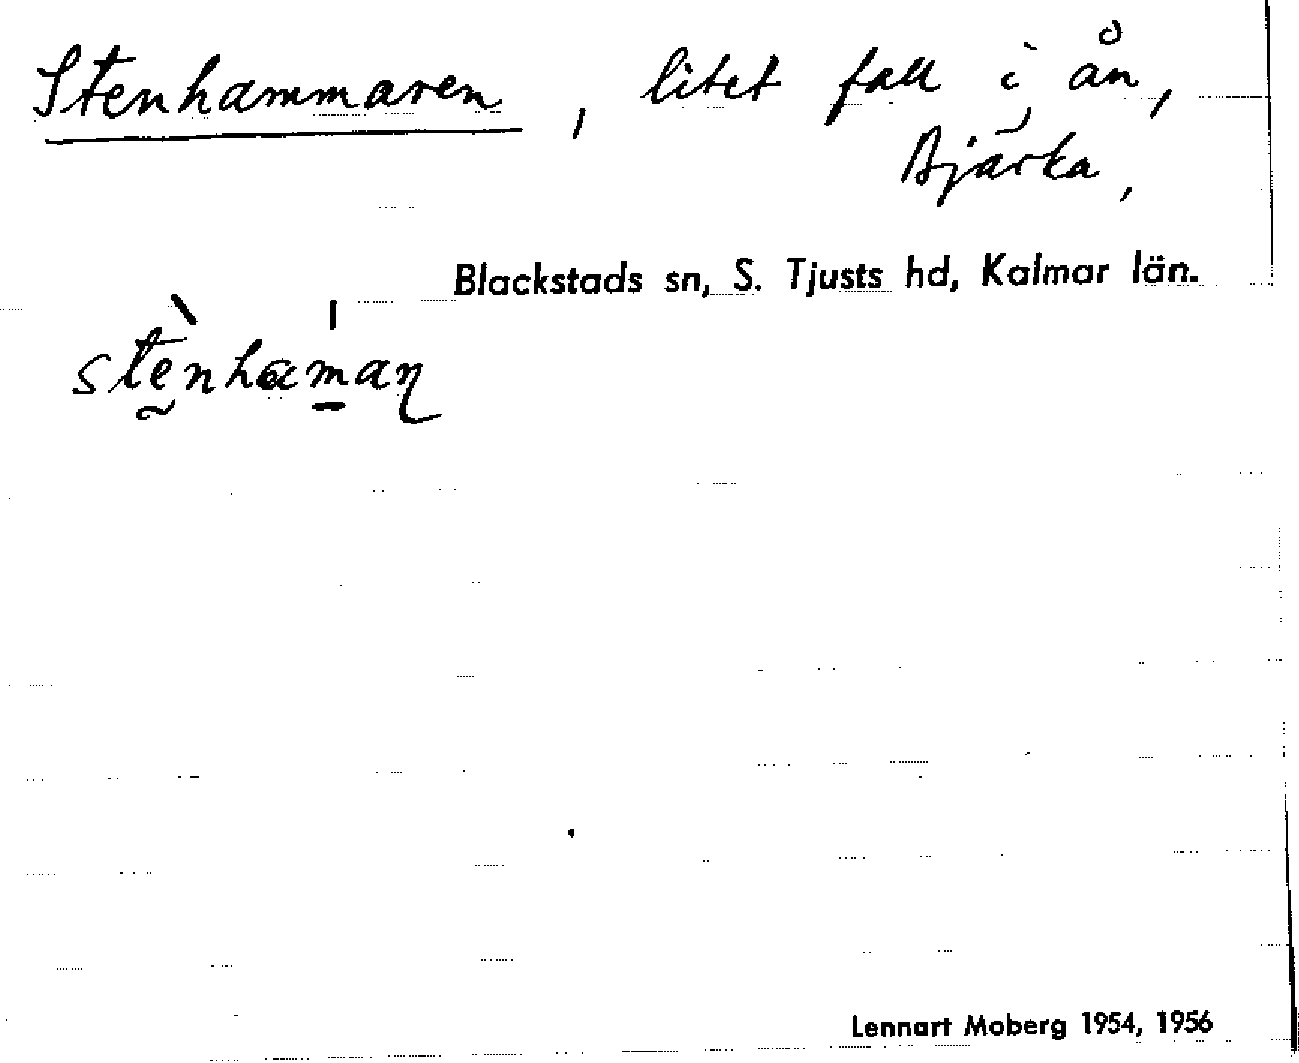 Stenhammaren, litet fall i ån,
Bjärka,
Blackstads sn, S. Tjusts hd, Kalmar län.
stènhaman
Lennart Moberg 1954, 1956